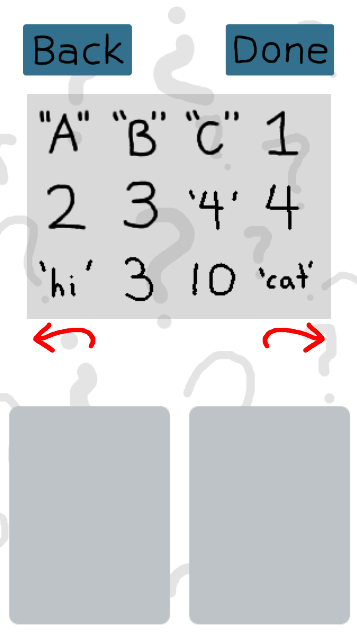 Back Done
"A" "B" "C" 1
2 3 '4' 4
'hi' 3 10 'cat'